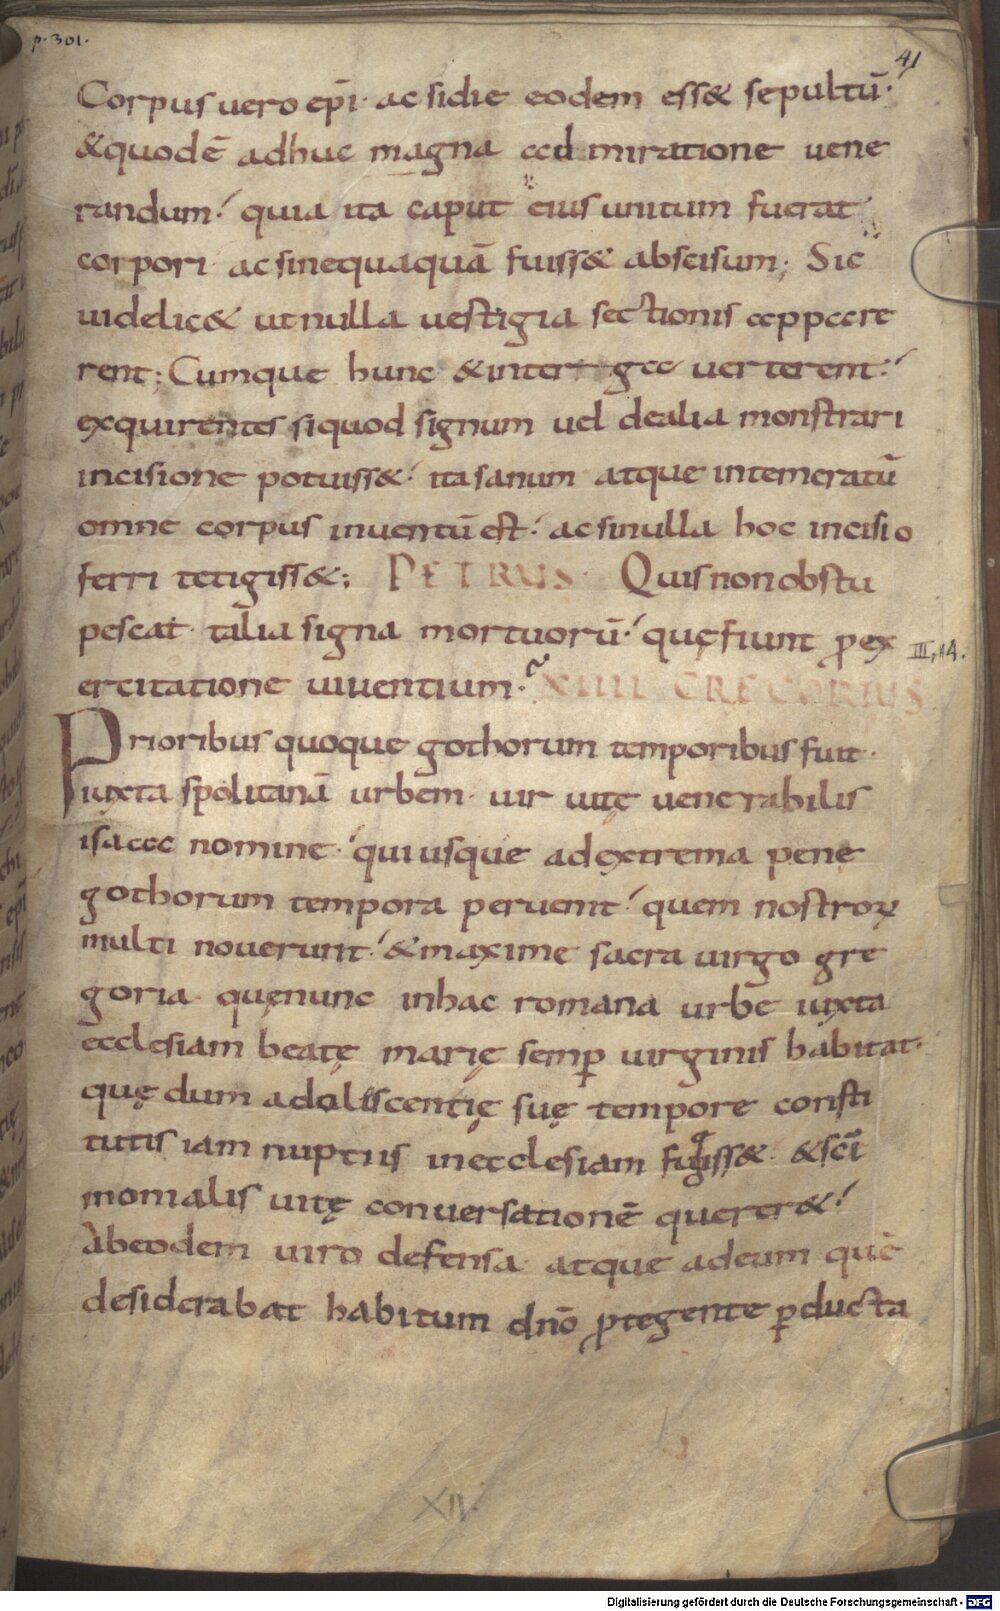 p. 301.
41
Corpus uero ep̄i· ac sidie eodem ess& sepultū·
&quodē adhuc magna admiratione uene
randum·́ quia ita caput eius unitum fuerat
corpori· ac sinequaquā fuiss& abscisum; Sic
uidelic& ut nulla uestigia sectionis appare
rent; Cumque hunc &interga uerterent·́
exquirentes siquod signum uel dealia monstrari
incisione potuiss&·́ ita sanum atque intemeratū
omne corpus inuentū est·́ ac sinulla hoc incisio
ferri tetigiss&; PETRUS· Quis non obstu
pescat· talia signa mortuorū·́ quę fiunt ꝓ ex
III, 14.
ercitatione uiuentium· XIIII GREGORIUS
Prioribus quoque gothorum temporibus fuit·
iuxta spolitanā urbem· uir uitę uenerabilis
isaac nomine·́ qui usque ad extrema pene
gothorum tempora peruenit·́ quem nostroꝝ
multi nouerunt·́ &maxime sacra uirgo gre
goria· quę nunc inhac romana urbe iuxta
ecclesiam beatę marię semꝑ uirginis habitat·
quę dum adoliscentię suę tempore consti
tutis iam nuptiis inecclesiam fugiss&· &sc̄i
monialis uitę conuersationē querer&·́
Abeodem uiro defensa· atque adeum quē
desiderabat habitum dn̄o ꝓtegente ꝑducta
XIV.
Digitalisierung gefördert durch die Deutsche Forschungsgemeinschaft - DFG